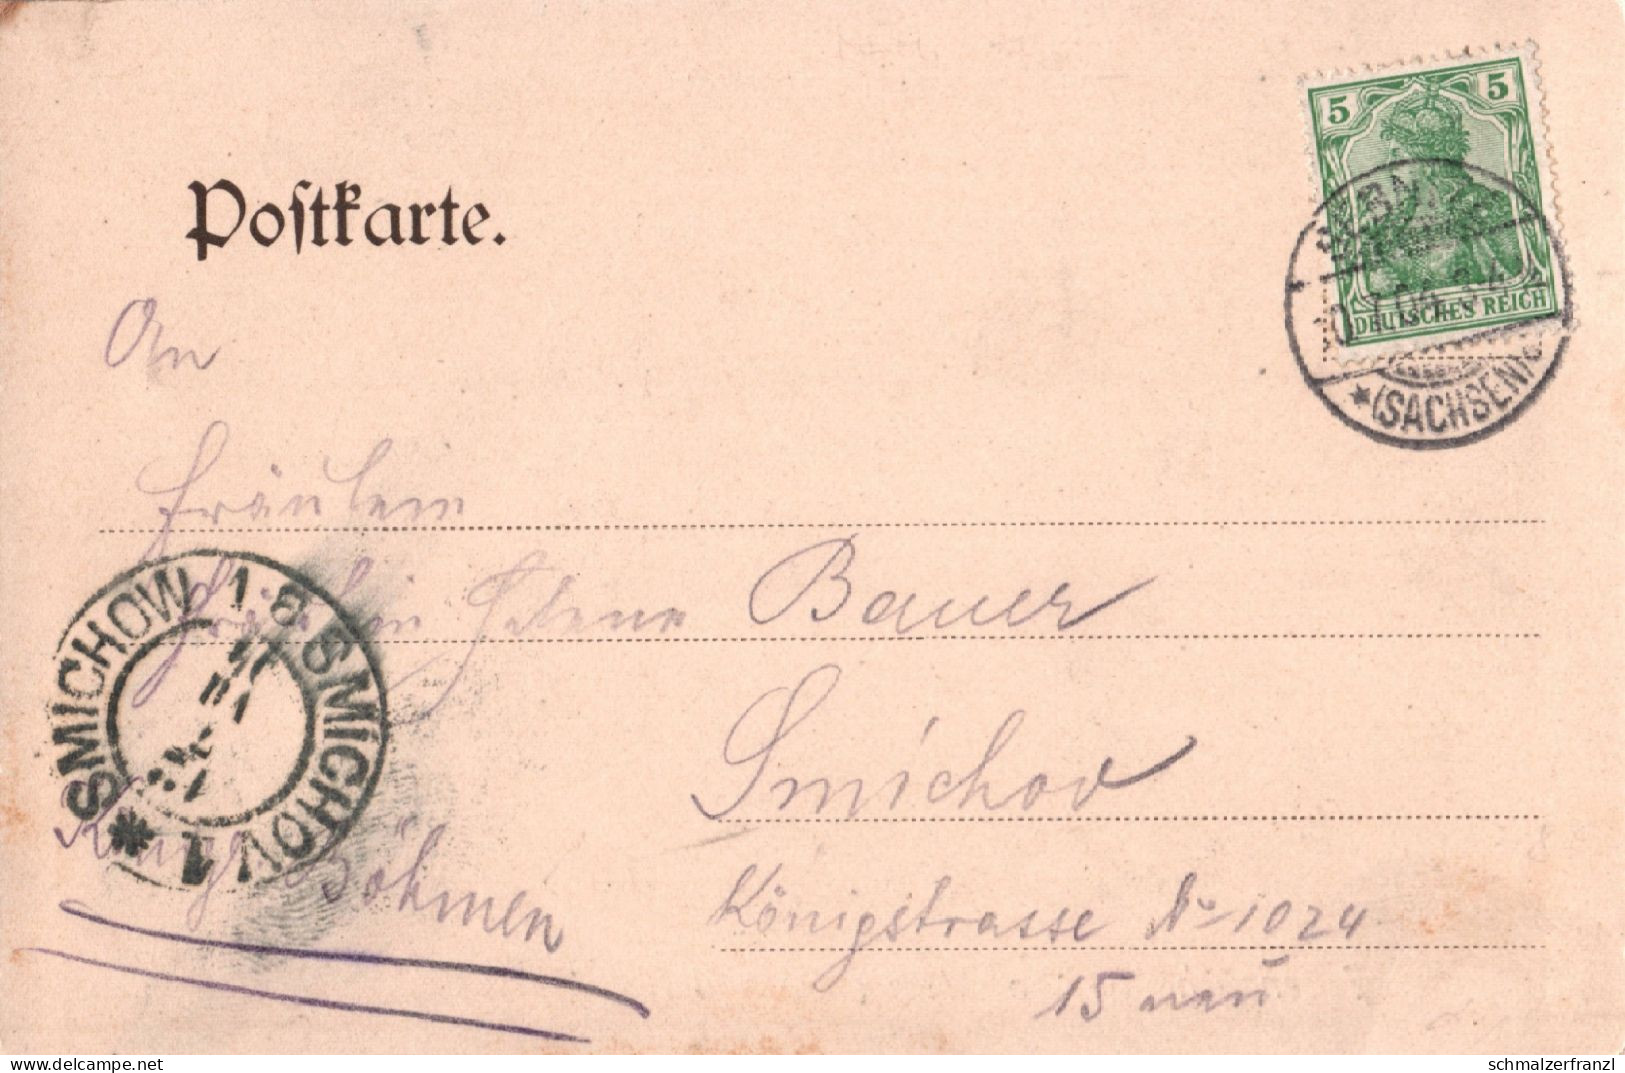 Postkarte.
5 5
DEUTSCHES REICH
* (SACHSEN)
An
Fräulein
Fräulein Helene Bauer
Smichov
Königr. Böhmen
Königstrasse No 1024
15 neu
SMICHOW 1
SMÍCHOV 1
*
www.delcampe.net
schmalzerfranzl